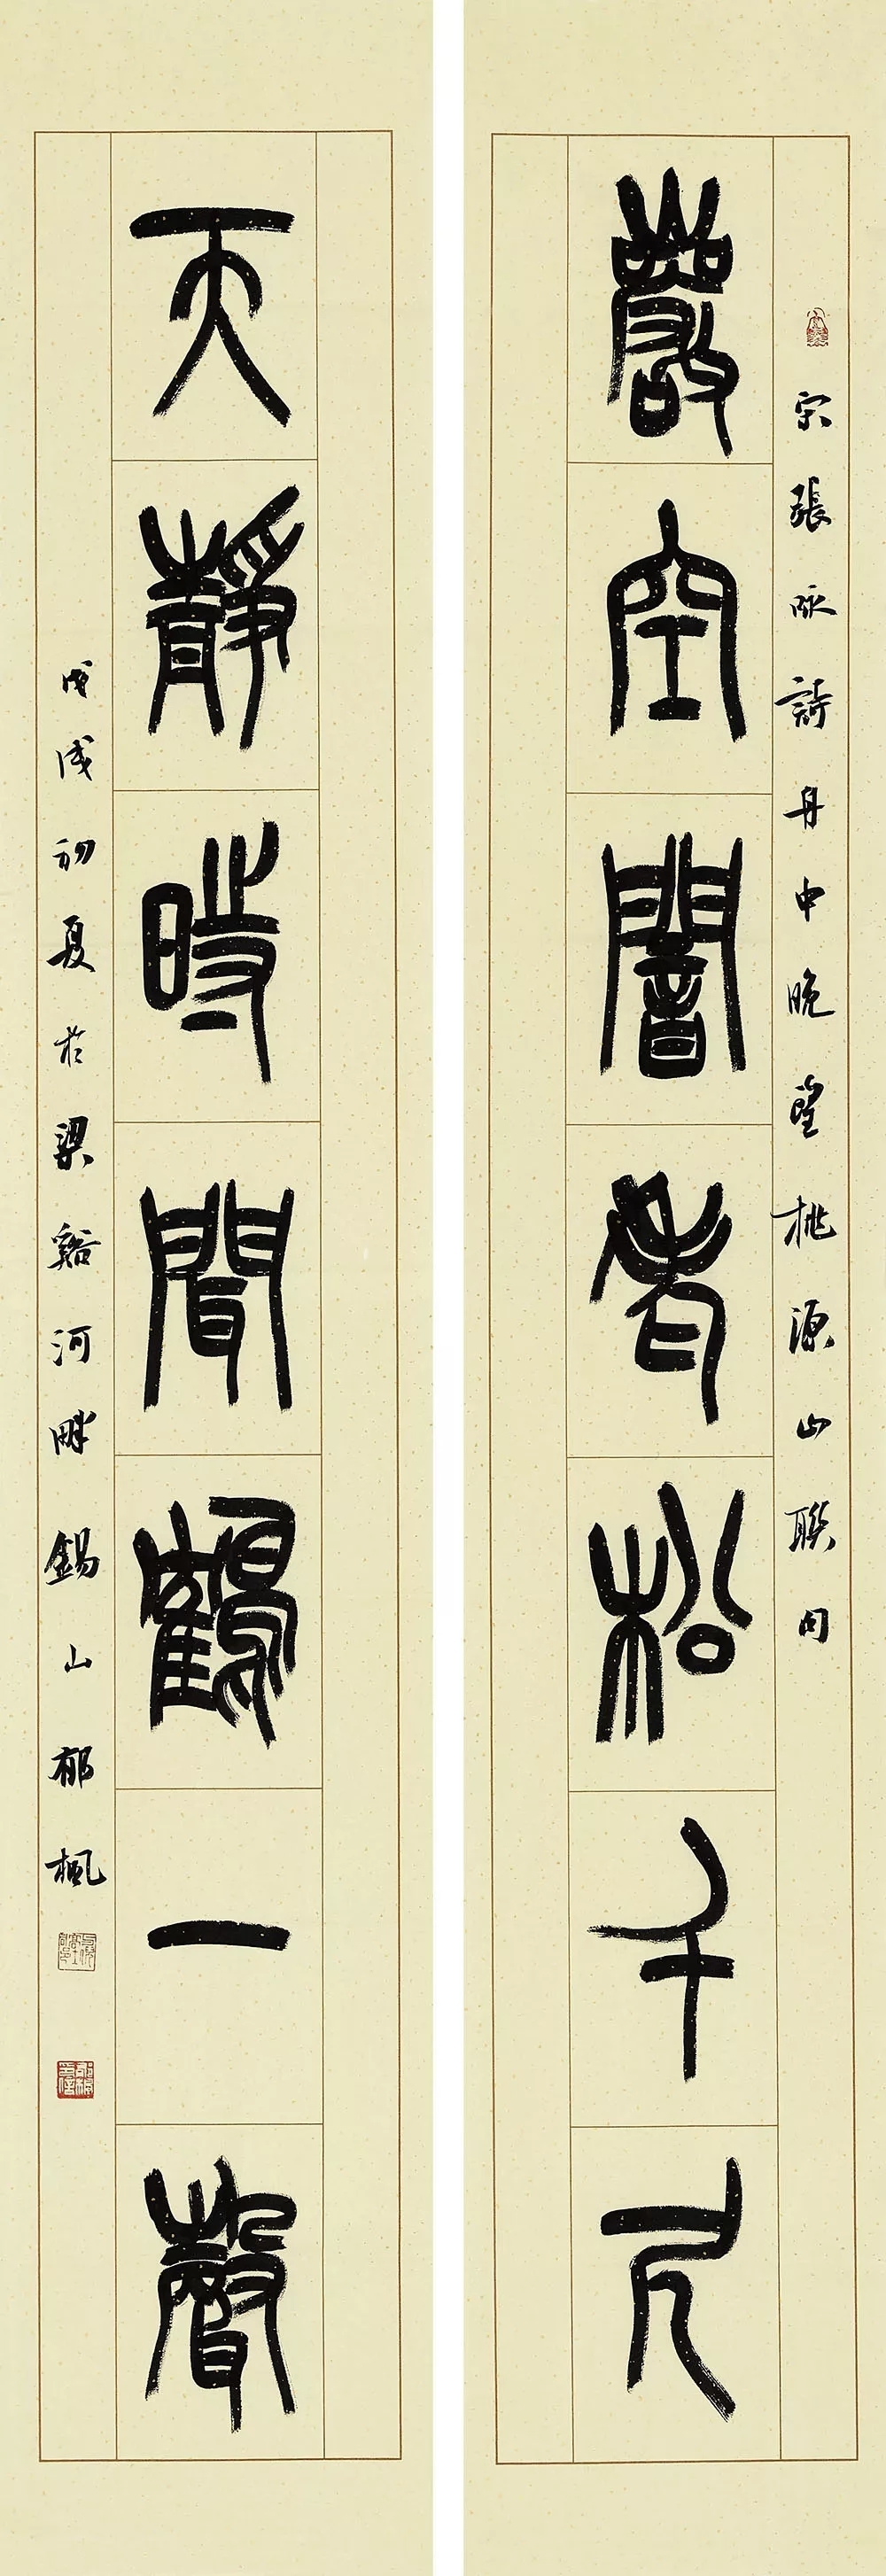 宋張咏詩舟中晚望桃源山聯句
巖空闇老松千尺
天靜時聞鶴一聲
戊戌初夏於梁谿河畔錫山郁楓